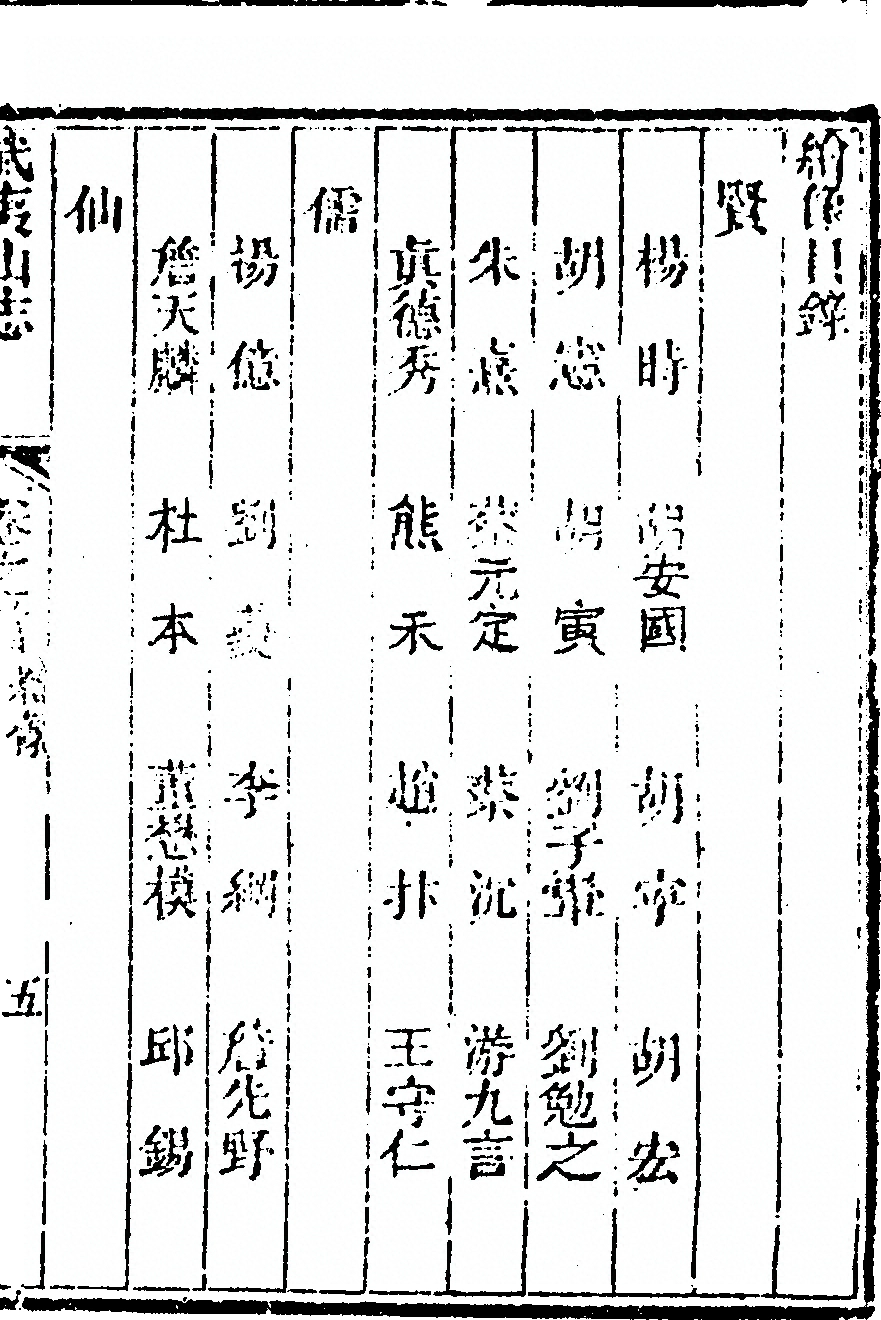 繪像目錄
賢
楊時 胡安國 胡寧 胡宏
胡憲 胡寅 劉子翬 劉勉之
朱熹 蔡元定 蔡沉 游九言
真德秀 熊禾 趙抃 王守仁
儒
楊億 劉 李綱 詹先野
詹天麟 杜本 董懋模 邱錫
仙
武夷山志
五